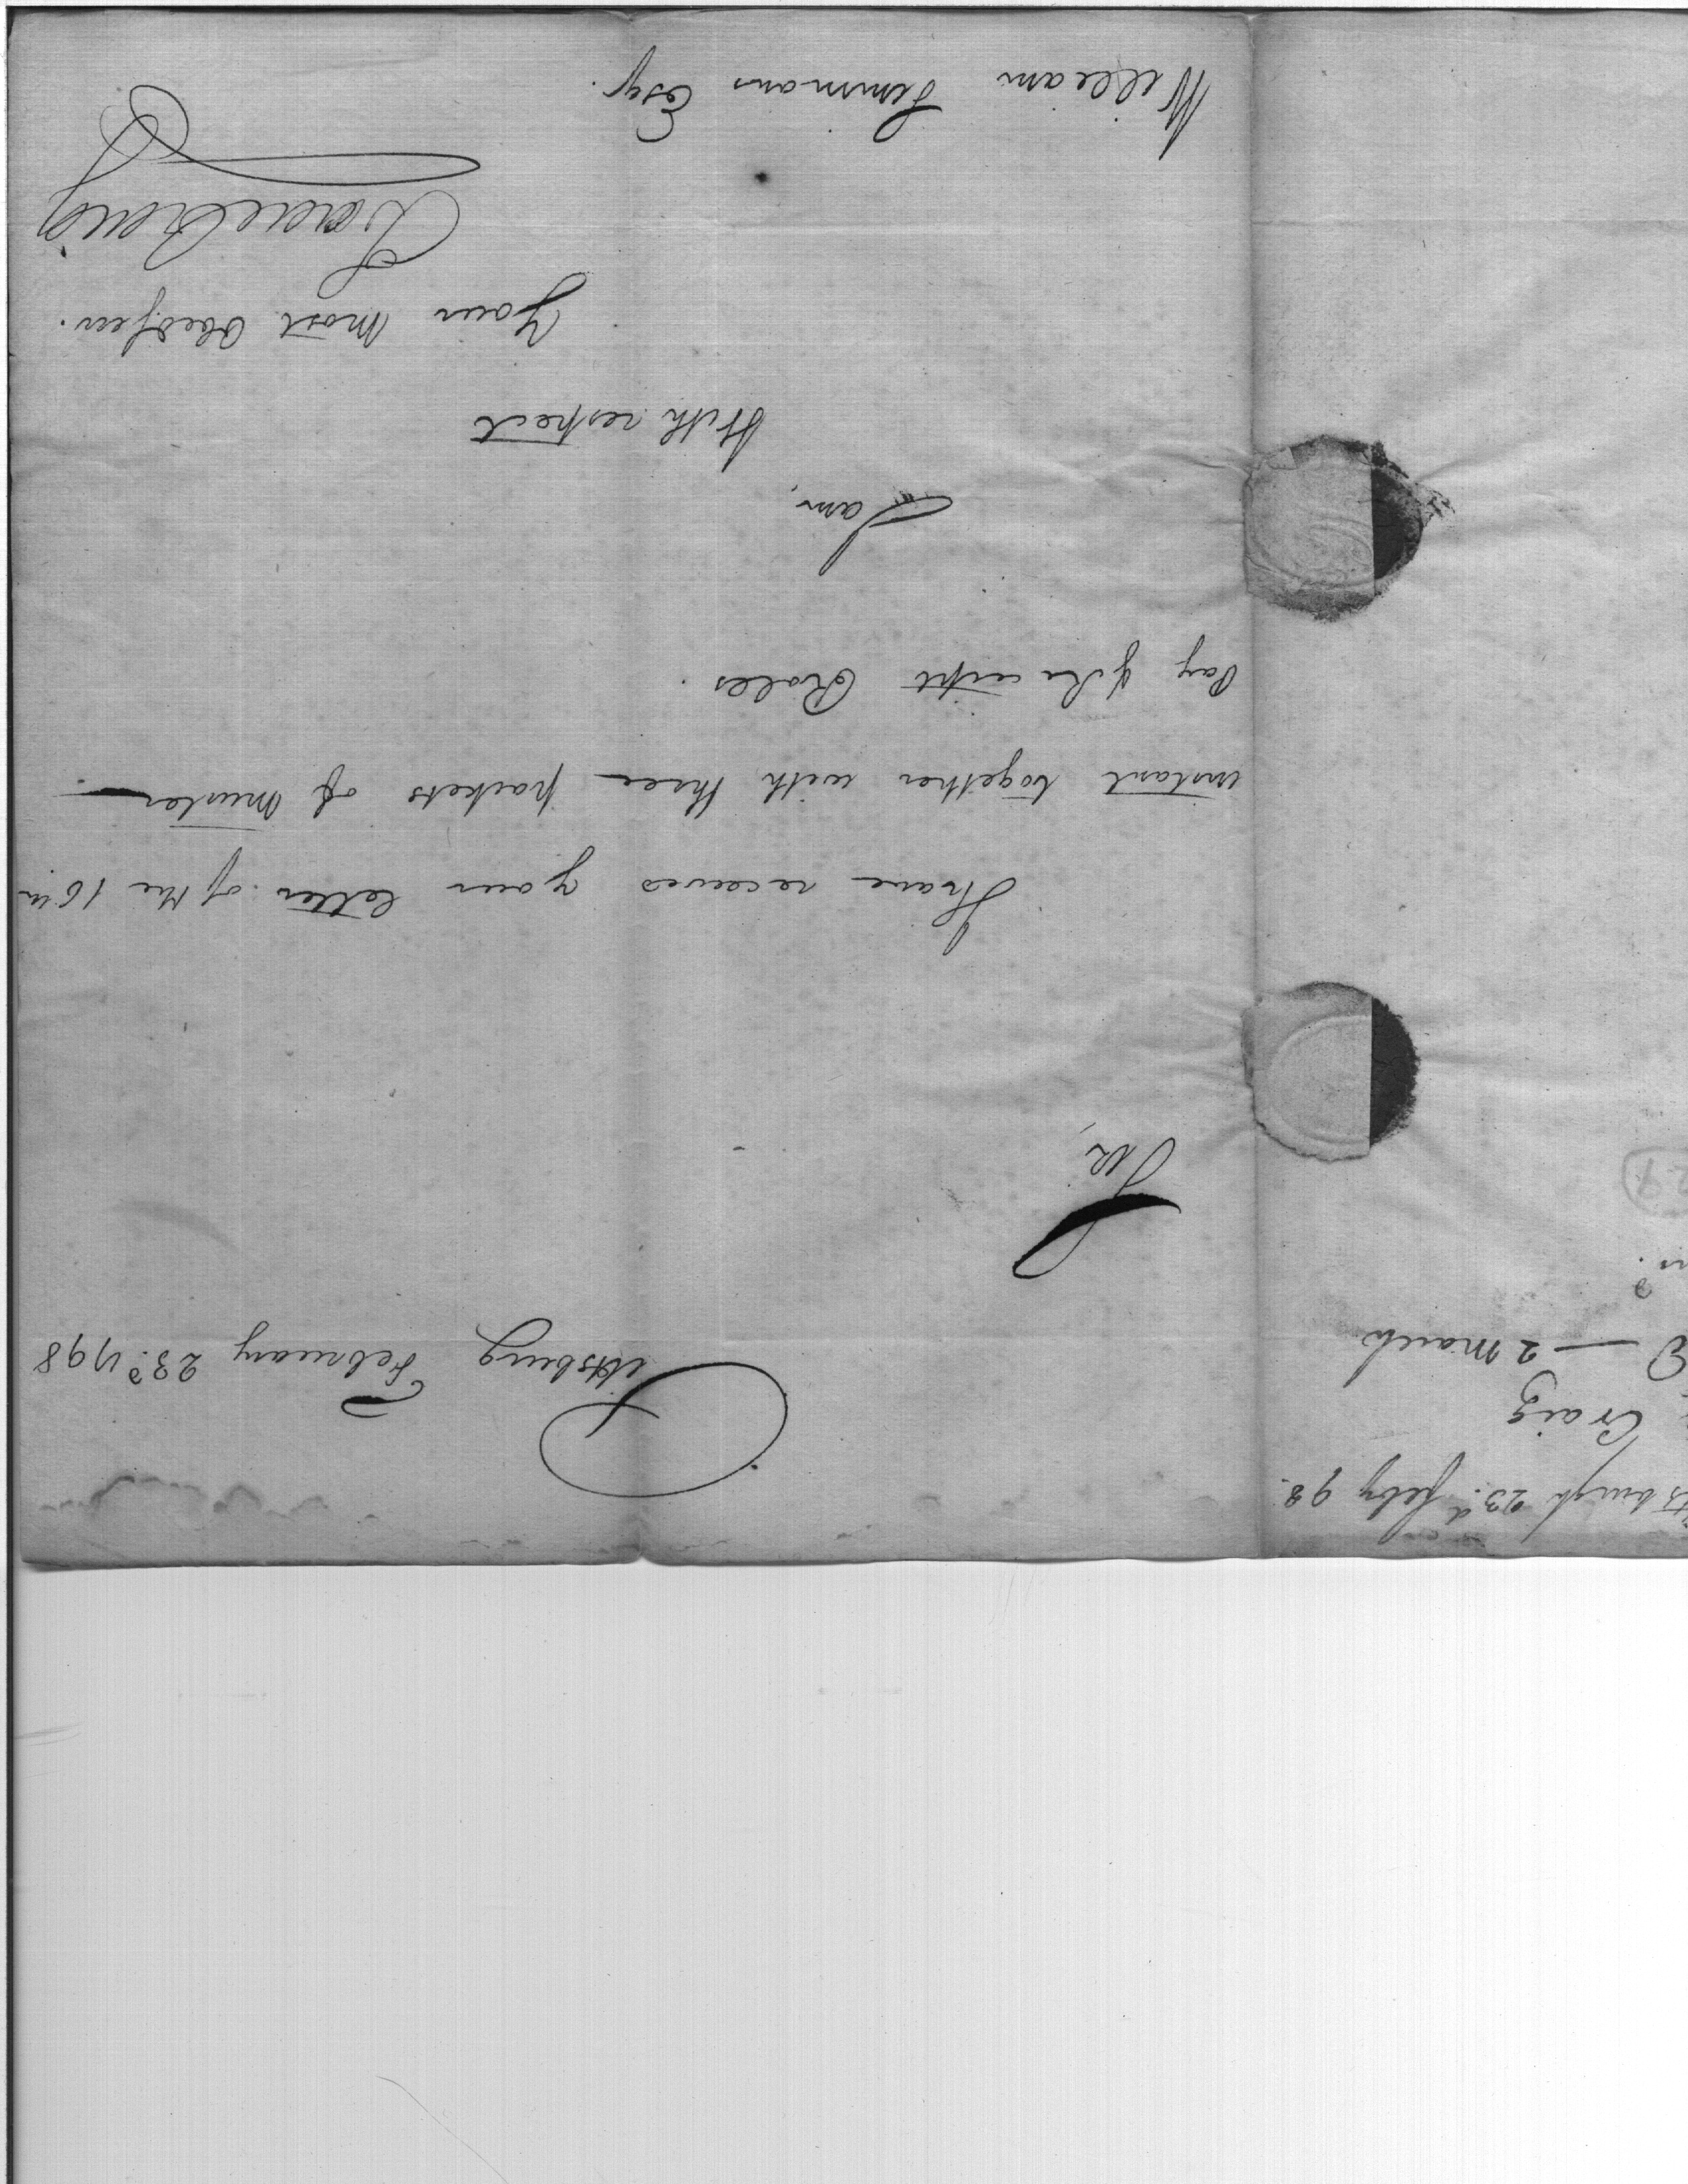 Pittsburg February 23d. 1798
Sir,
I have received your letter of the 16th
instant together with three packets of muster
Pay & Receipt Rolls.
I am,
With respect
Your most Obed Ser.
Isaac Craig
William Simmons Esqr.
tsburgh 23d. feby 98.
Craig
2 March